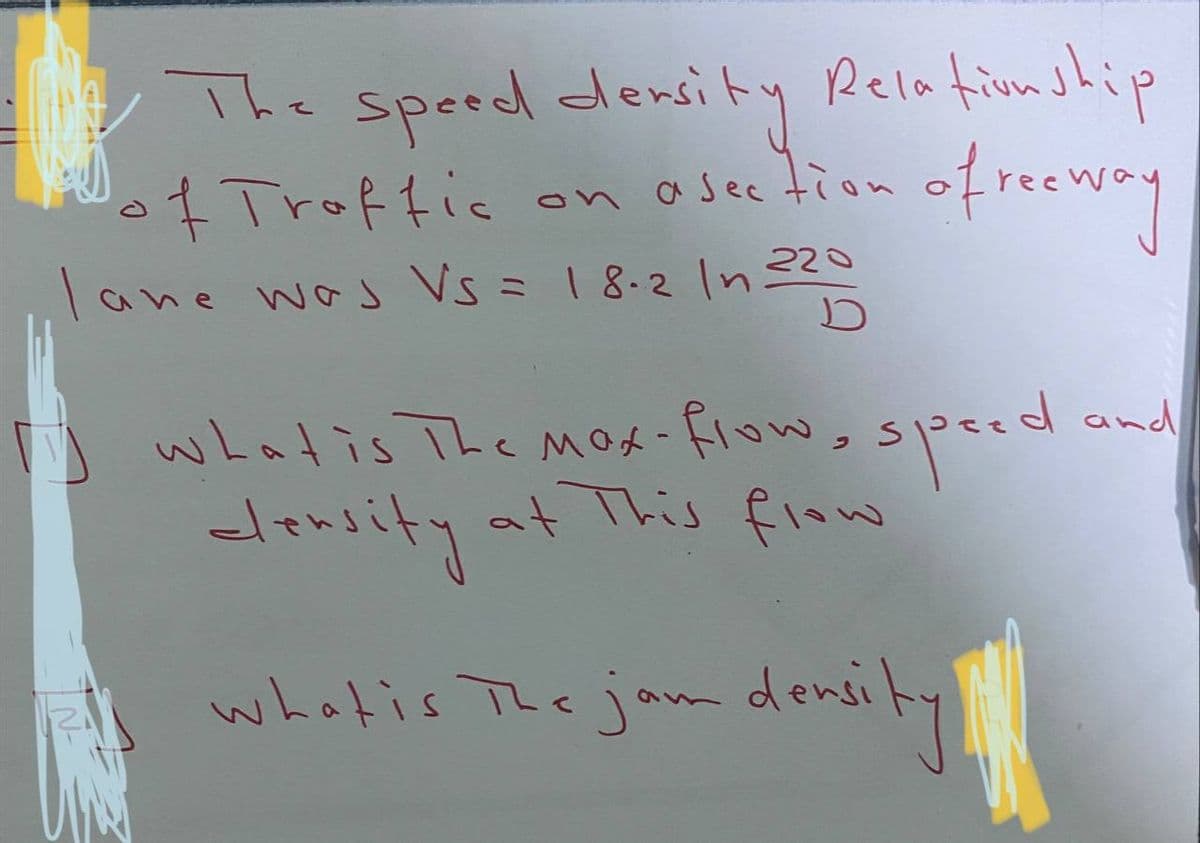 The speed density Relationship
of Traffic on a section of reeway
lane was Vs = 18.2 ln 220/D
1) what is The max-flow, speed and
density at This flow
2) what is The jam density